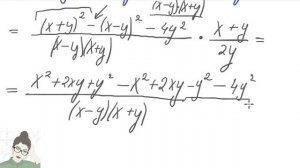 (x-y)(x+y)
= ((x+y)² - (x-y)² - 4y²) / ((x-y)(x+y)) · (x+y) / (2y) =
= (x² + 2xy + y² - x² + 2xy - y² - 4y²) / ((x-y)(x+y))